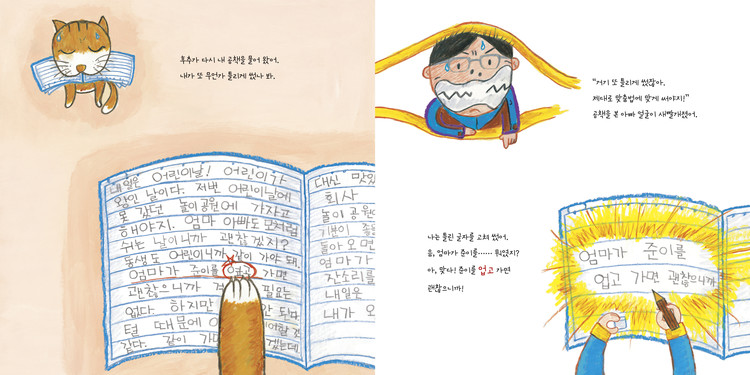 후추가 다시 내 공책을 물어 왔어.
내가 또 무언가 틀리게 썼나 봐.
내일은 어린이날! 어린이가
왕인 날이다. 저번 어린이날에
못 갔던 놀이 공원에 가자고
해야지. 엄마 아빠도 모처럼
쉬는 날이니까 괜찮겠지?
동생도 어린이니까 같이 가야 돼.
엄마가 준이를 가면
괜찮으니까 걱 필요는
없다. 하지만 안 되다
털 때문에
같다. 같이 가 겠는데
대신 맛있
회사
놀이 공원
기분이 좋을
놀아 오면
엄마가
잔소리를
내일은
내가 오
“거기 또 틀리게 썼잖아.
제대로 맞춤법에 맞게 써야지!”
공책을 본 아빠 얼굴이 새빨개졌어.
나는 틀린 글자를 고쳐 썼어.
음, 엄마가 준이를…… 뭐였지?
아, 맞다! 준이를 업고 가면
괜찮으니까!
엄마가 준이를
업고 가면 괜찮으니까